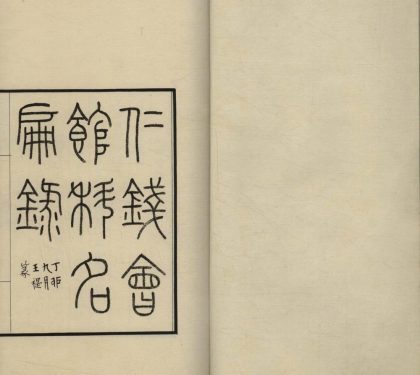 仁錢會
館秋名
扁錄
丁卯
九月
王禔
篆